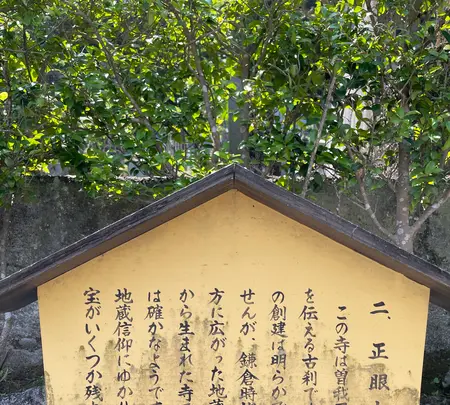 二 正眼
この寺は曽我
を伝える古刹で
の創建は明らか
せんが、鎌倉時
方に広がった地蔵
から生まれた寺
は確かなようで
地蔵信仰にゆか
宝がいくつか残